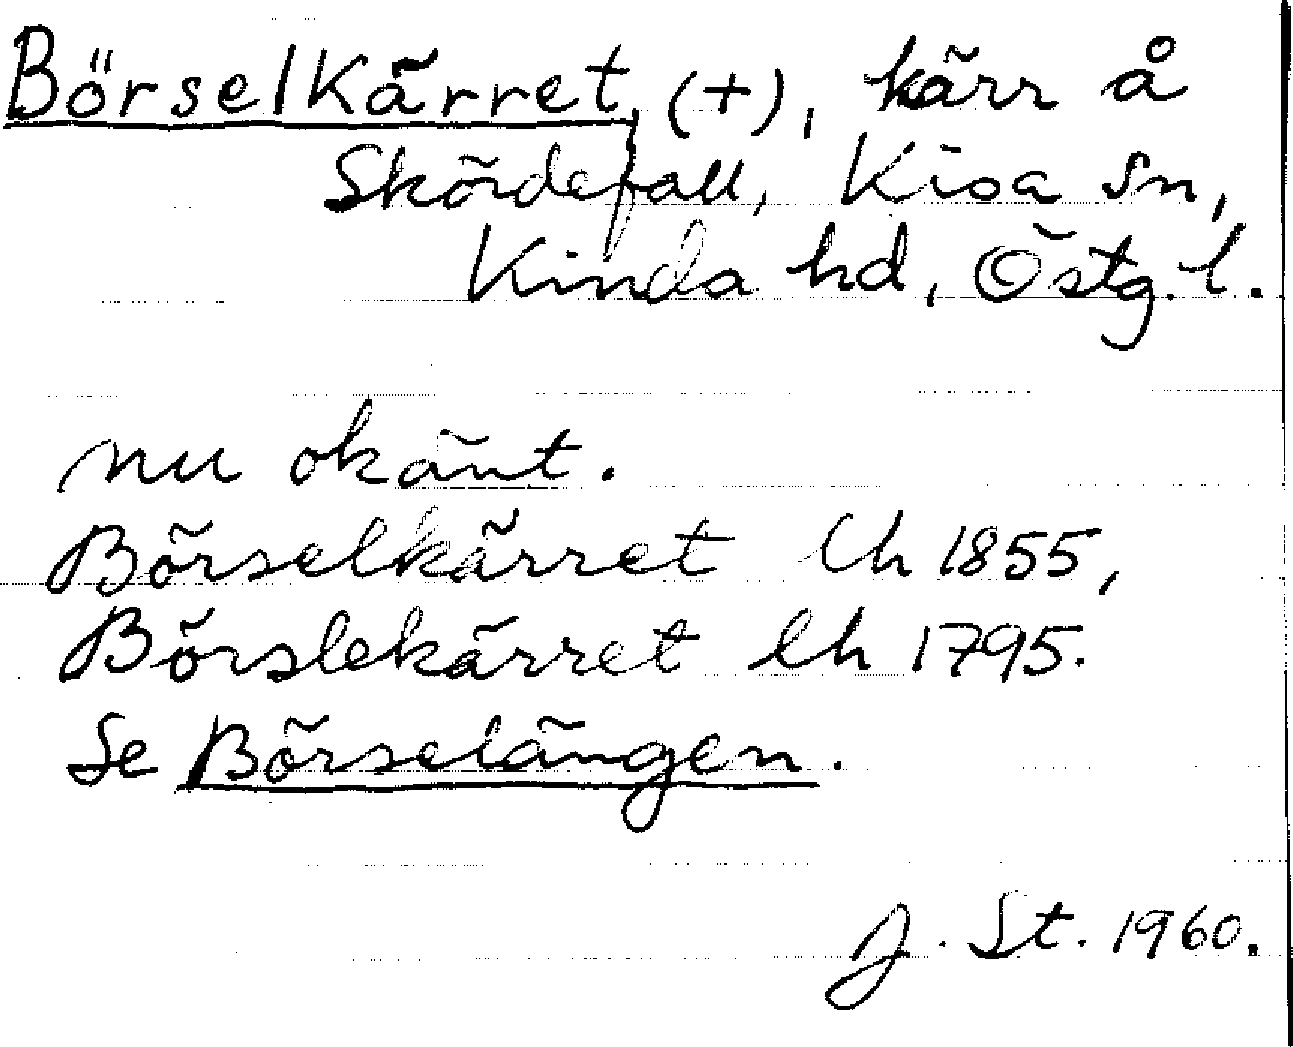 Börselkärret, (+), kärr å
Skördefall, Kisa sn,
Kinda hd, Östg. l.
nu okänt.
Börselkärret lh 1855,
Börslekärret lh 1795.
Se Börselängen.
J. St. 1960.